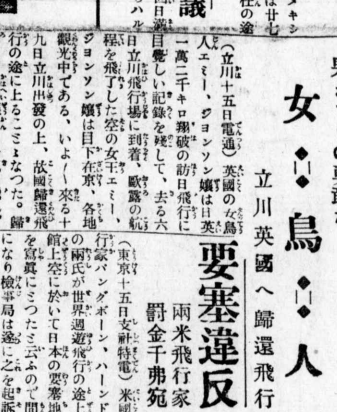 議
女鳥人
立川英國へ歸還飛行
(立川十五日電通)英國の女鳥
人エミー、ジヨンソン嬢は日英
一萬二千キロ翔破の訪日飛行に
目覺しい記錄を殘して、去る六
日立川飛行場に到着、歐露の航
程を飛了した空の女王エミー、
ジヨンソン嬢は目下在京、各地
觀光中である、いよ〳〵來る十
九日立川出發の上、故國歸還飛
行の途に上ることになつたの、歸
要塞違反
兩米飛行家
罰金千弗宛
(東京十五日支社特電)米國
行家パングボーン、ハーンド
の兩氏が世界週遊飛行の途上
館上空に於いて日本の要塞地
を寫眞にとつたと云ふので問
になり檢事局は遂に之を起訴